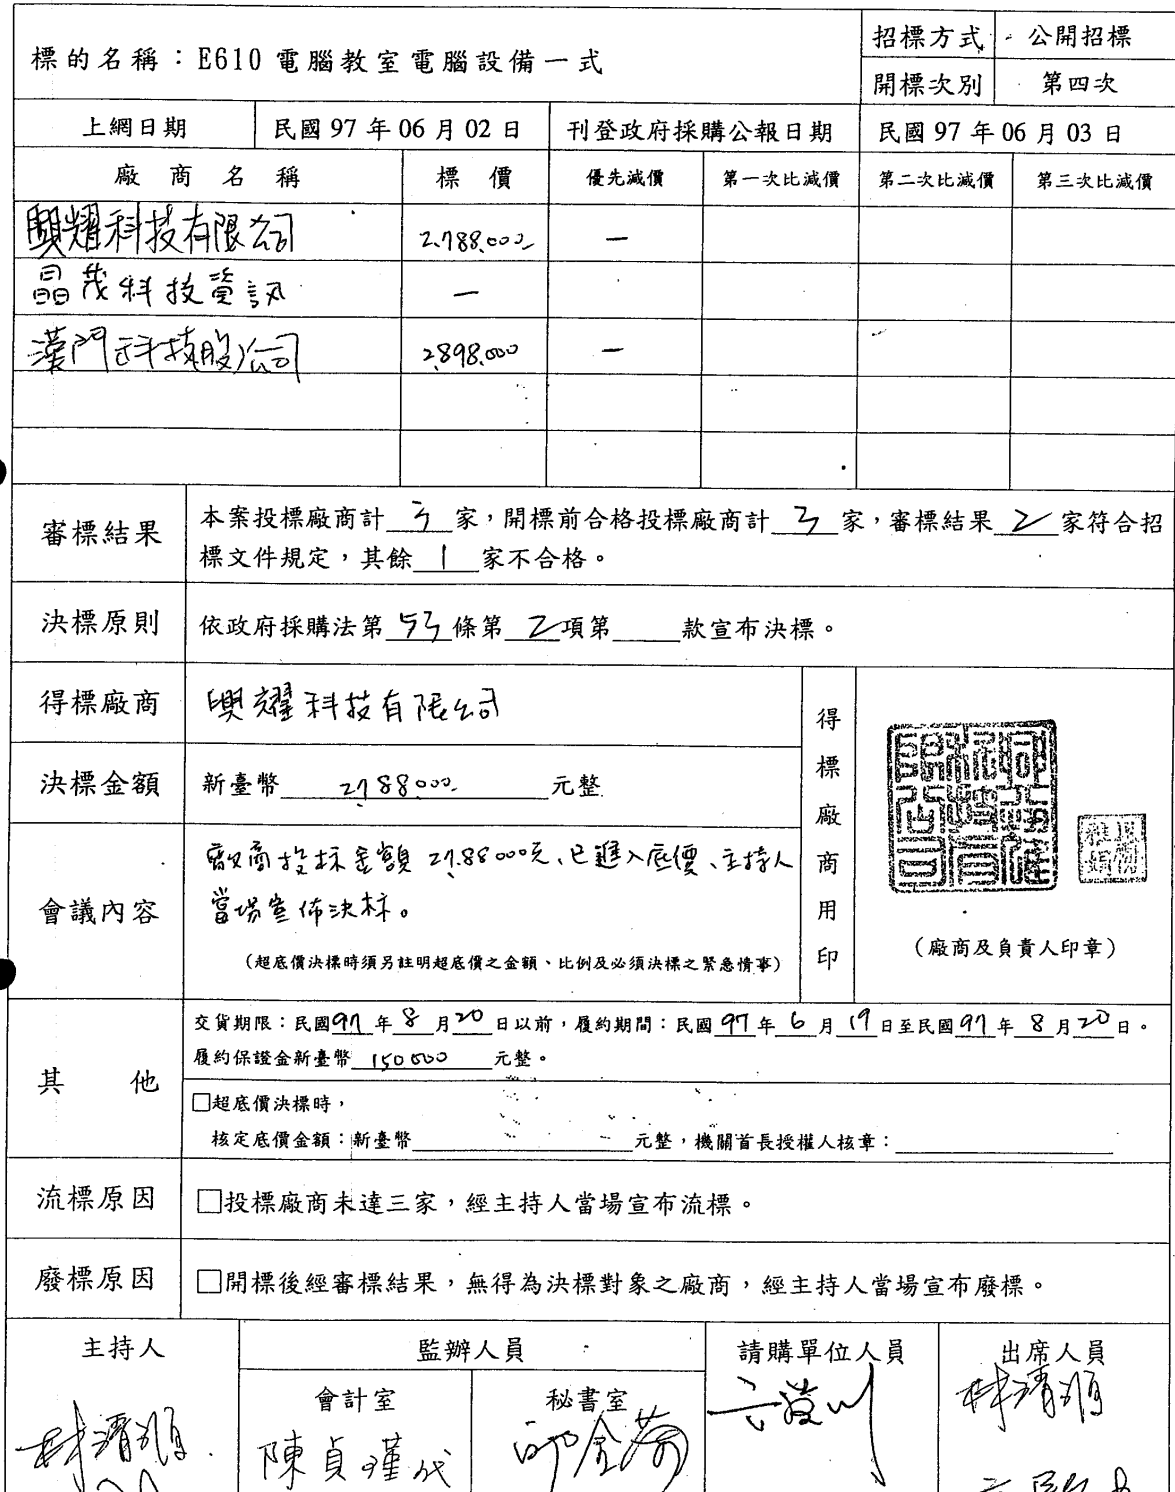 標的名稱：E610電腦教室電腦設備一式
招標方式 公開招標
開標次別 第四次
上網日期 民國97年06月02日 刊登政府採購公報日期 民國97年06月03日
廠商名稱 標價 優先減價 第一次比減價 第二次比減價 第三次比減價
興耀科技有限公司 2,788,000 —
晶茂科技資訊 —
漢門科技股公司 2,898,000 —
審標結果 本案投標廠商計 3 家，開標前合格投標廠商計 3 家，審標結果 2 家符合招
標文件規定，其餘 1 家不合格。
決標原則 依政府採購法第 53 條第 2 項第 款宣布決標。
得標廠商 興耀科技有限公司
決標金額 新臺幣 2,788,000 元整
得標廠商用印
會議內容 廠商投标金額 2,788,000元、已進入底價、主持人
當場宣佈決标。
（超底價決標時須另註明超底價之金額、比例及必須決標之緊急情事）
（廠商及負責人印章）
其他 交貨期限：民國 97 年 8 月 20 日以前，履約期間：民國 97 年 6 月 19 日至民國 97 年 8 月 20 日。
履約保證金新臺幣 150000 元整。
□超底價決標時，
核定底價金額：新臺幣 元整，機關首長授權人核章：
流標原因 □投標廠商未達三家，經主持人當場宣布流標。
廢標原因 □開標後經審標結果，無得為決標對象之廠商，經主持人當場宣布廢標。
主持人 監辦人員 請購單位人員 出席人員
會計室 秘書室
林清順 陳貞瑾代 林清順